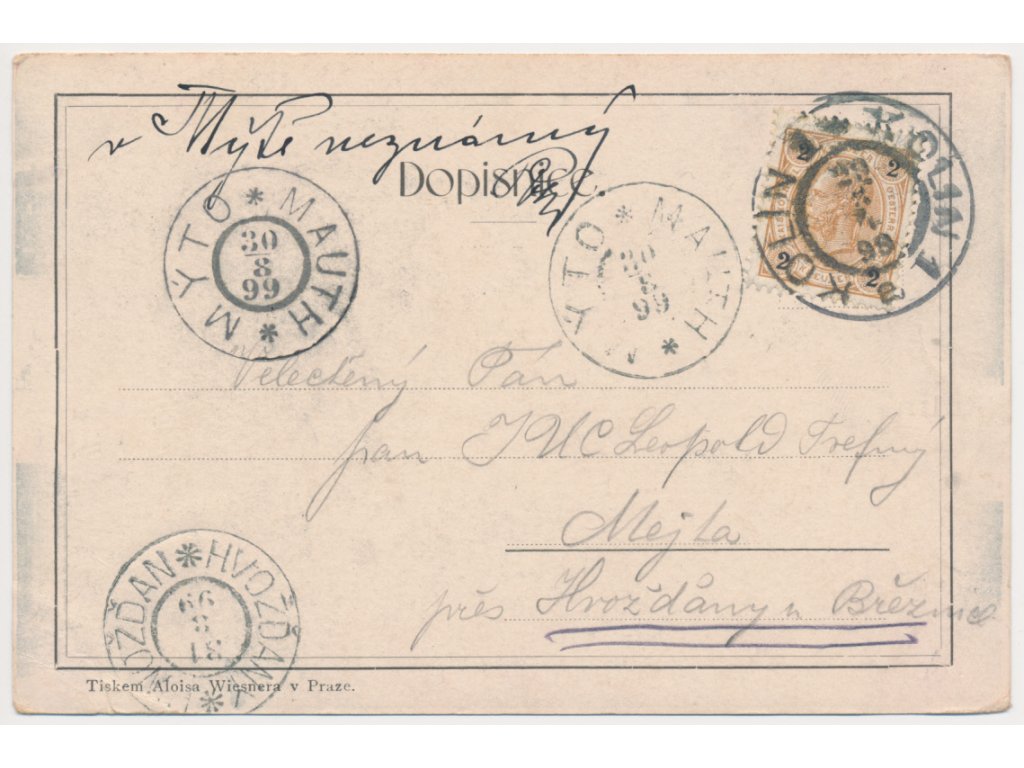 v Mýtě neznámý
Dopisnice.
* MAUTH * MÝTO
30
8
99
* MAUTH * MÝTO
30
8
99
KOLIN 1 KOLÍN
99
2 2
2 2
Velectěný Pán
pan JUC Leopold Trefný
Mejta
přes Hvožďány u Březnice
* HVOŽĎANY * HVOŽĎAN
31
8
99
Tiskem Aloisa Wiesnera v Praze.